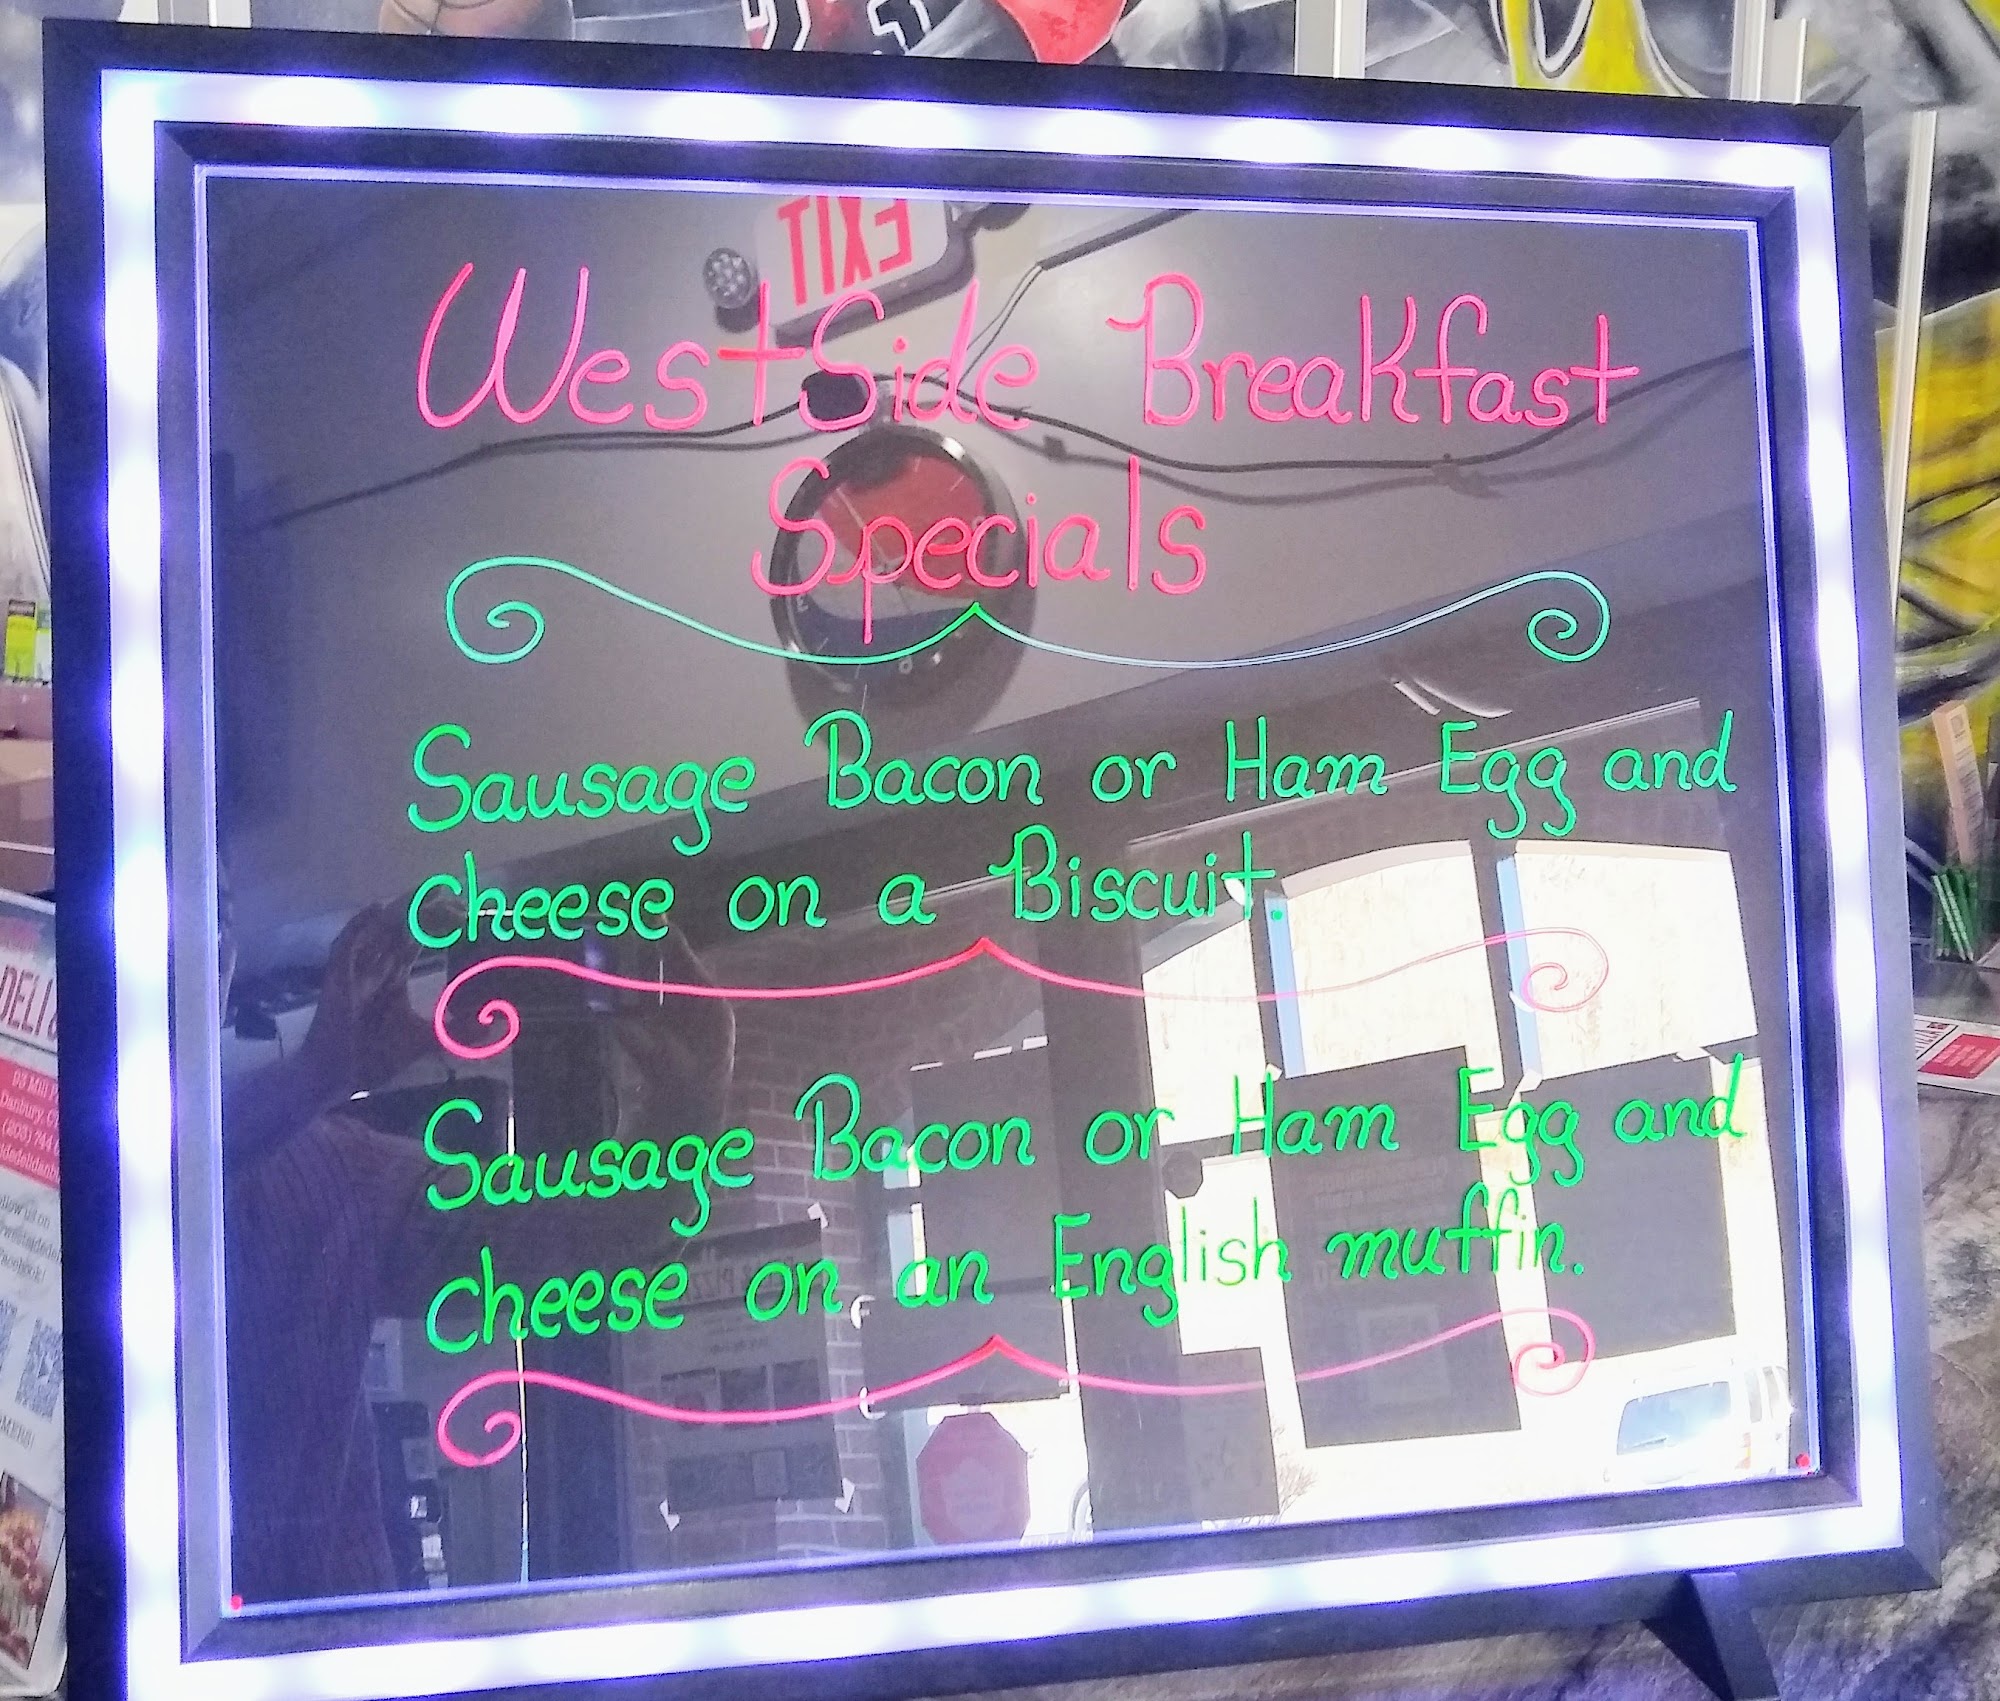 EXIT
WestSide Breakfast
Specials
Sausage Bacon or Ham Egg and
cheese on a Biscuit.
Sausage Bacon or Ham Egg and
cheese on an English muffin.
DELI
Danbury, C
(203) 744
Facebook!